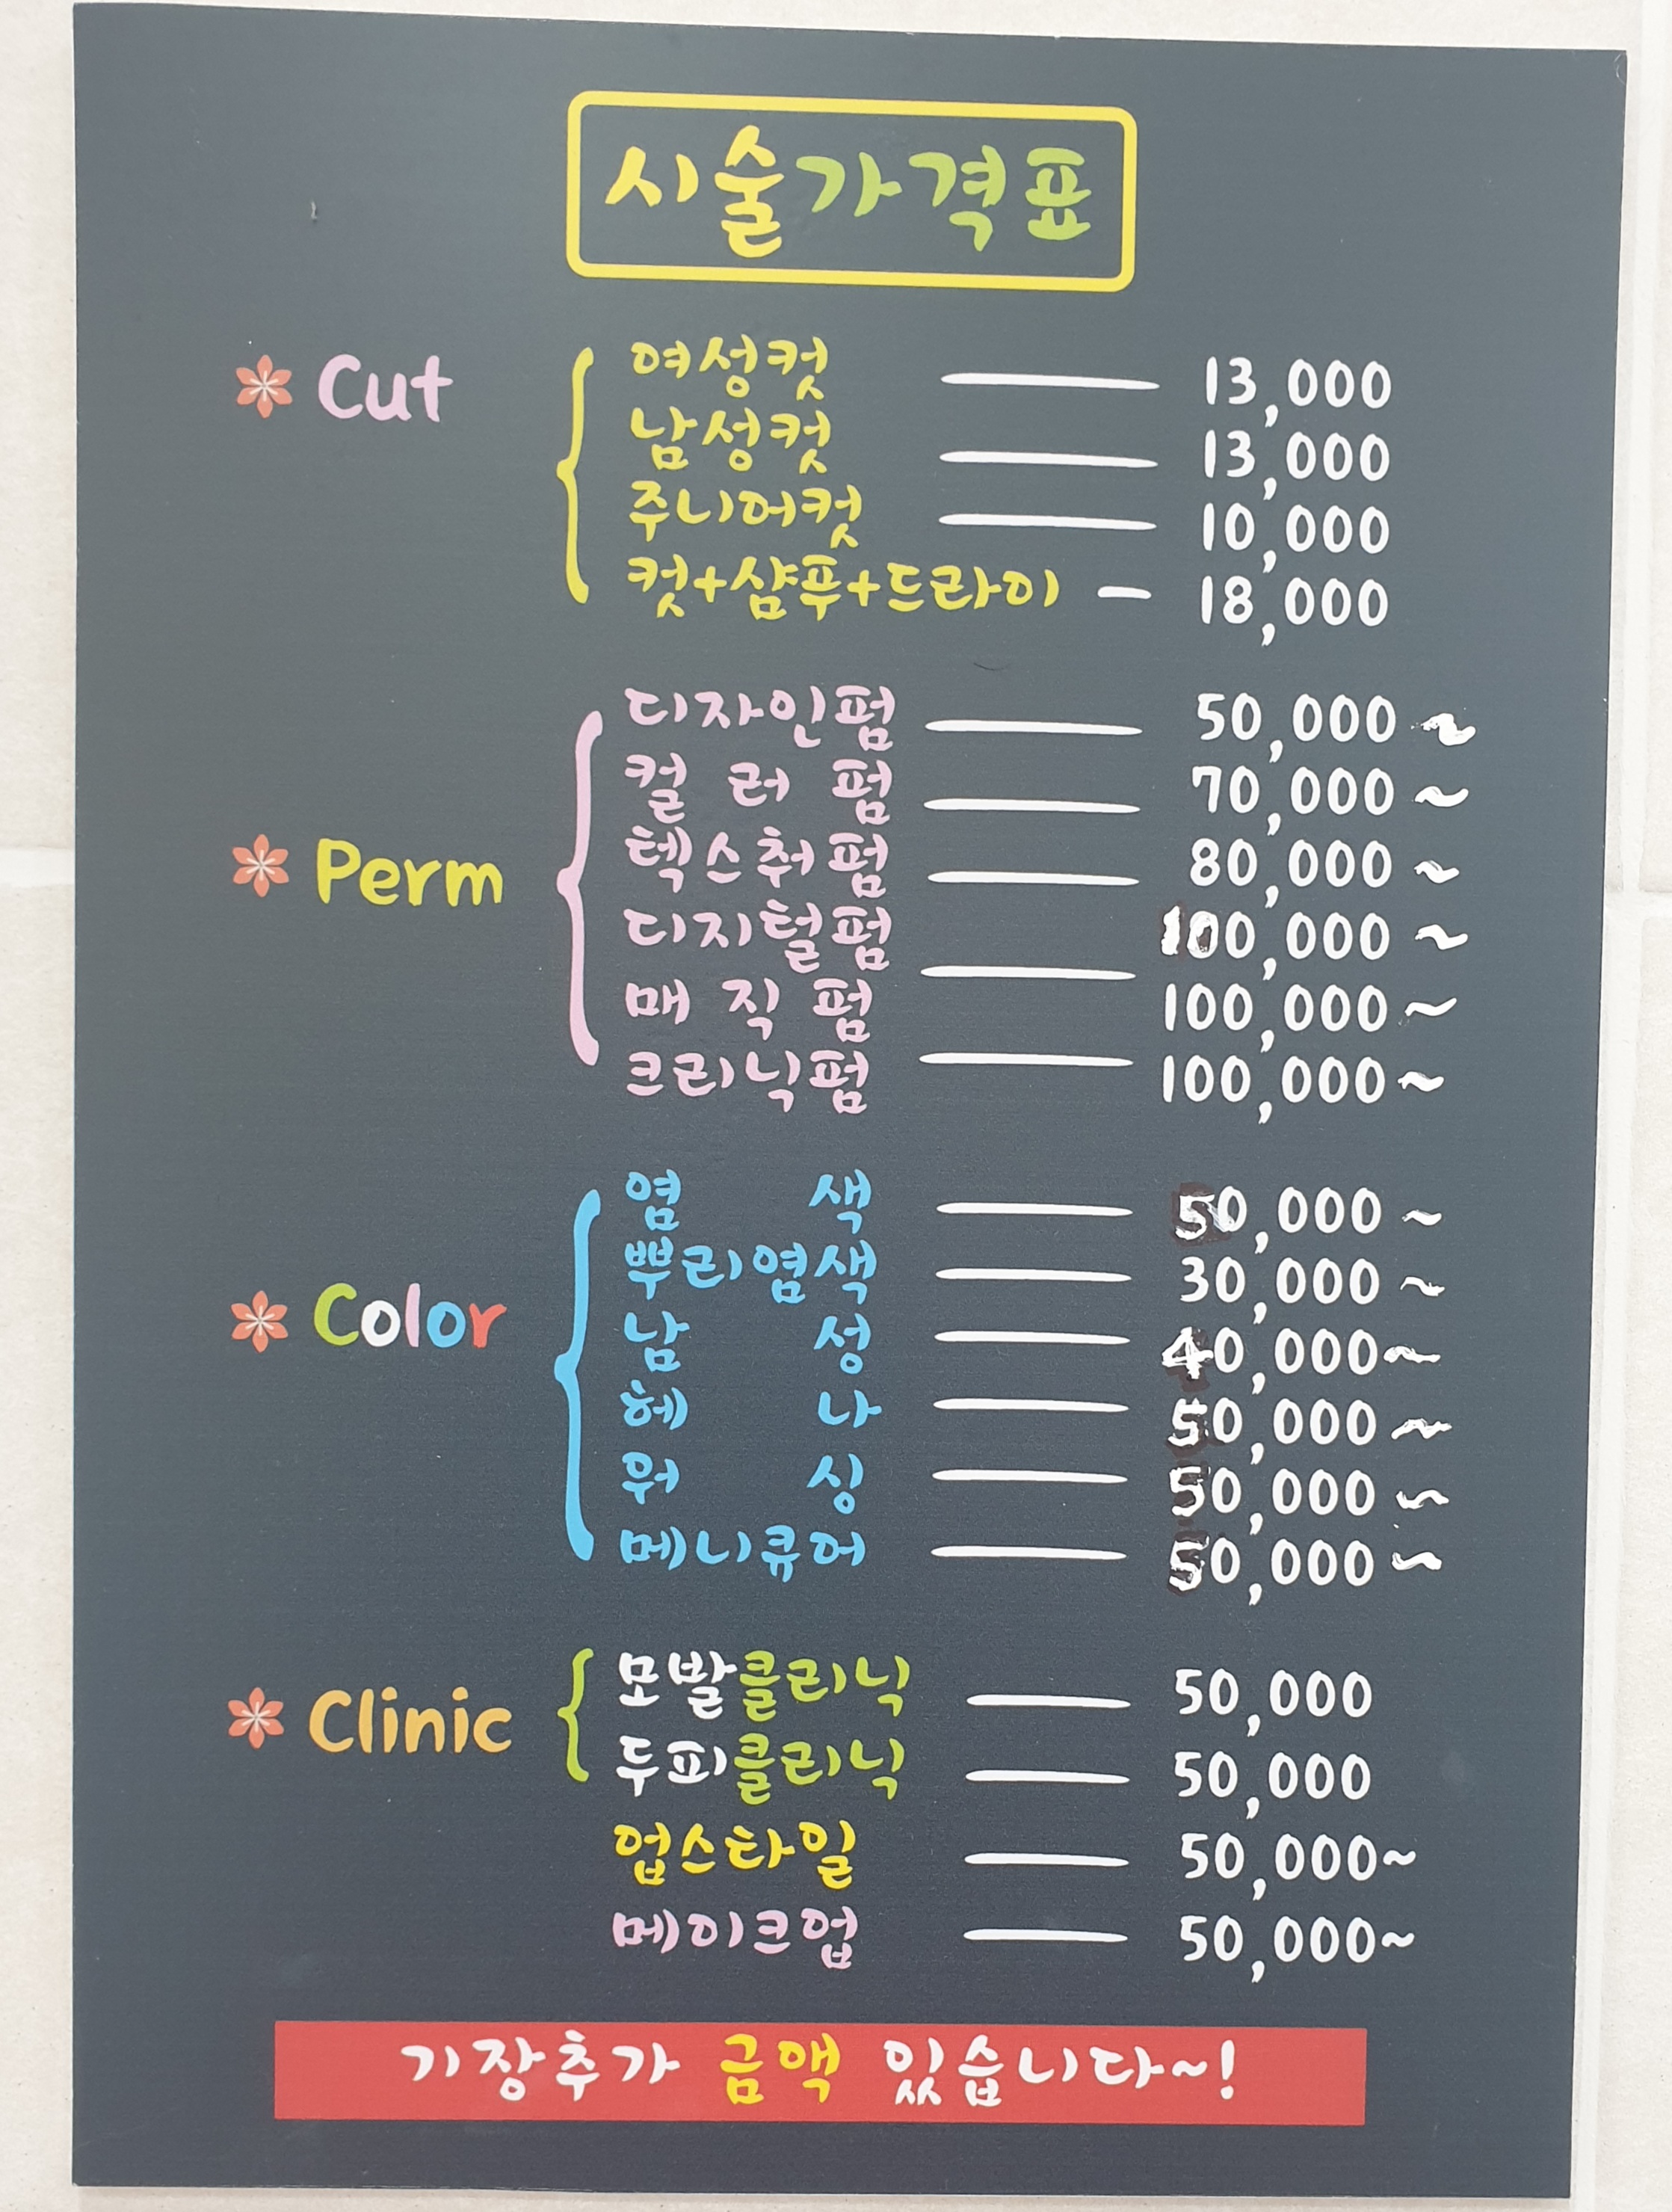 시술가격표
Cut
여성컷 13,000
남성컷 13,000
주니어컷 10,000
컷+샴푸+드라이 18,000
Perm
디자인펌 50,000~
컬러펌 70,000~
텍스춰펌 80,000~
디지털펌 100,000~
매직펌 100,000~
크리닉펌 100,000~
Color
염색 50,000~
뿌리염색 30,000~
남성 40,000~
헤나 50,000~
워싱 50,000~
메니큐어 50,000~
Clinic
모발클리닉 50,000
두피클리닉 50,000
업스타일 50,000~
메이크업 50,000~
기장추가 금액 있습니다~!